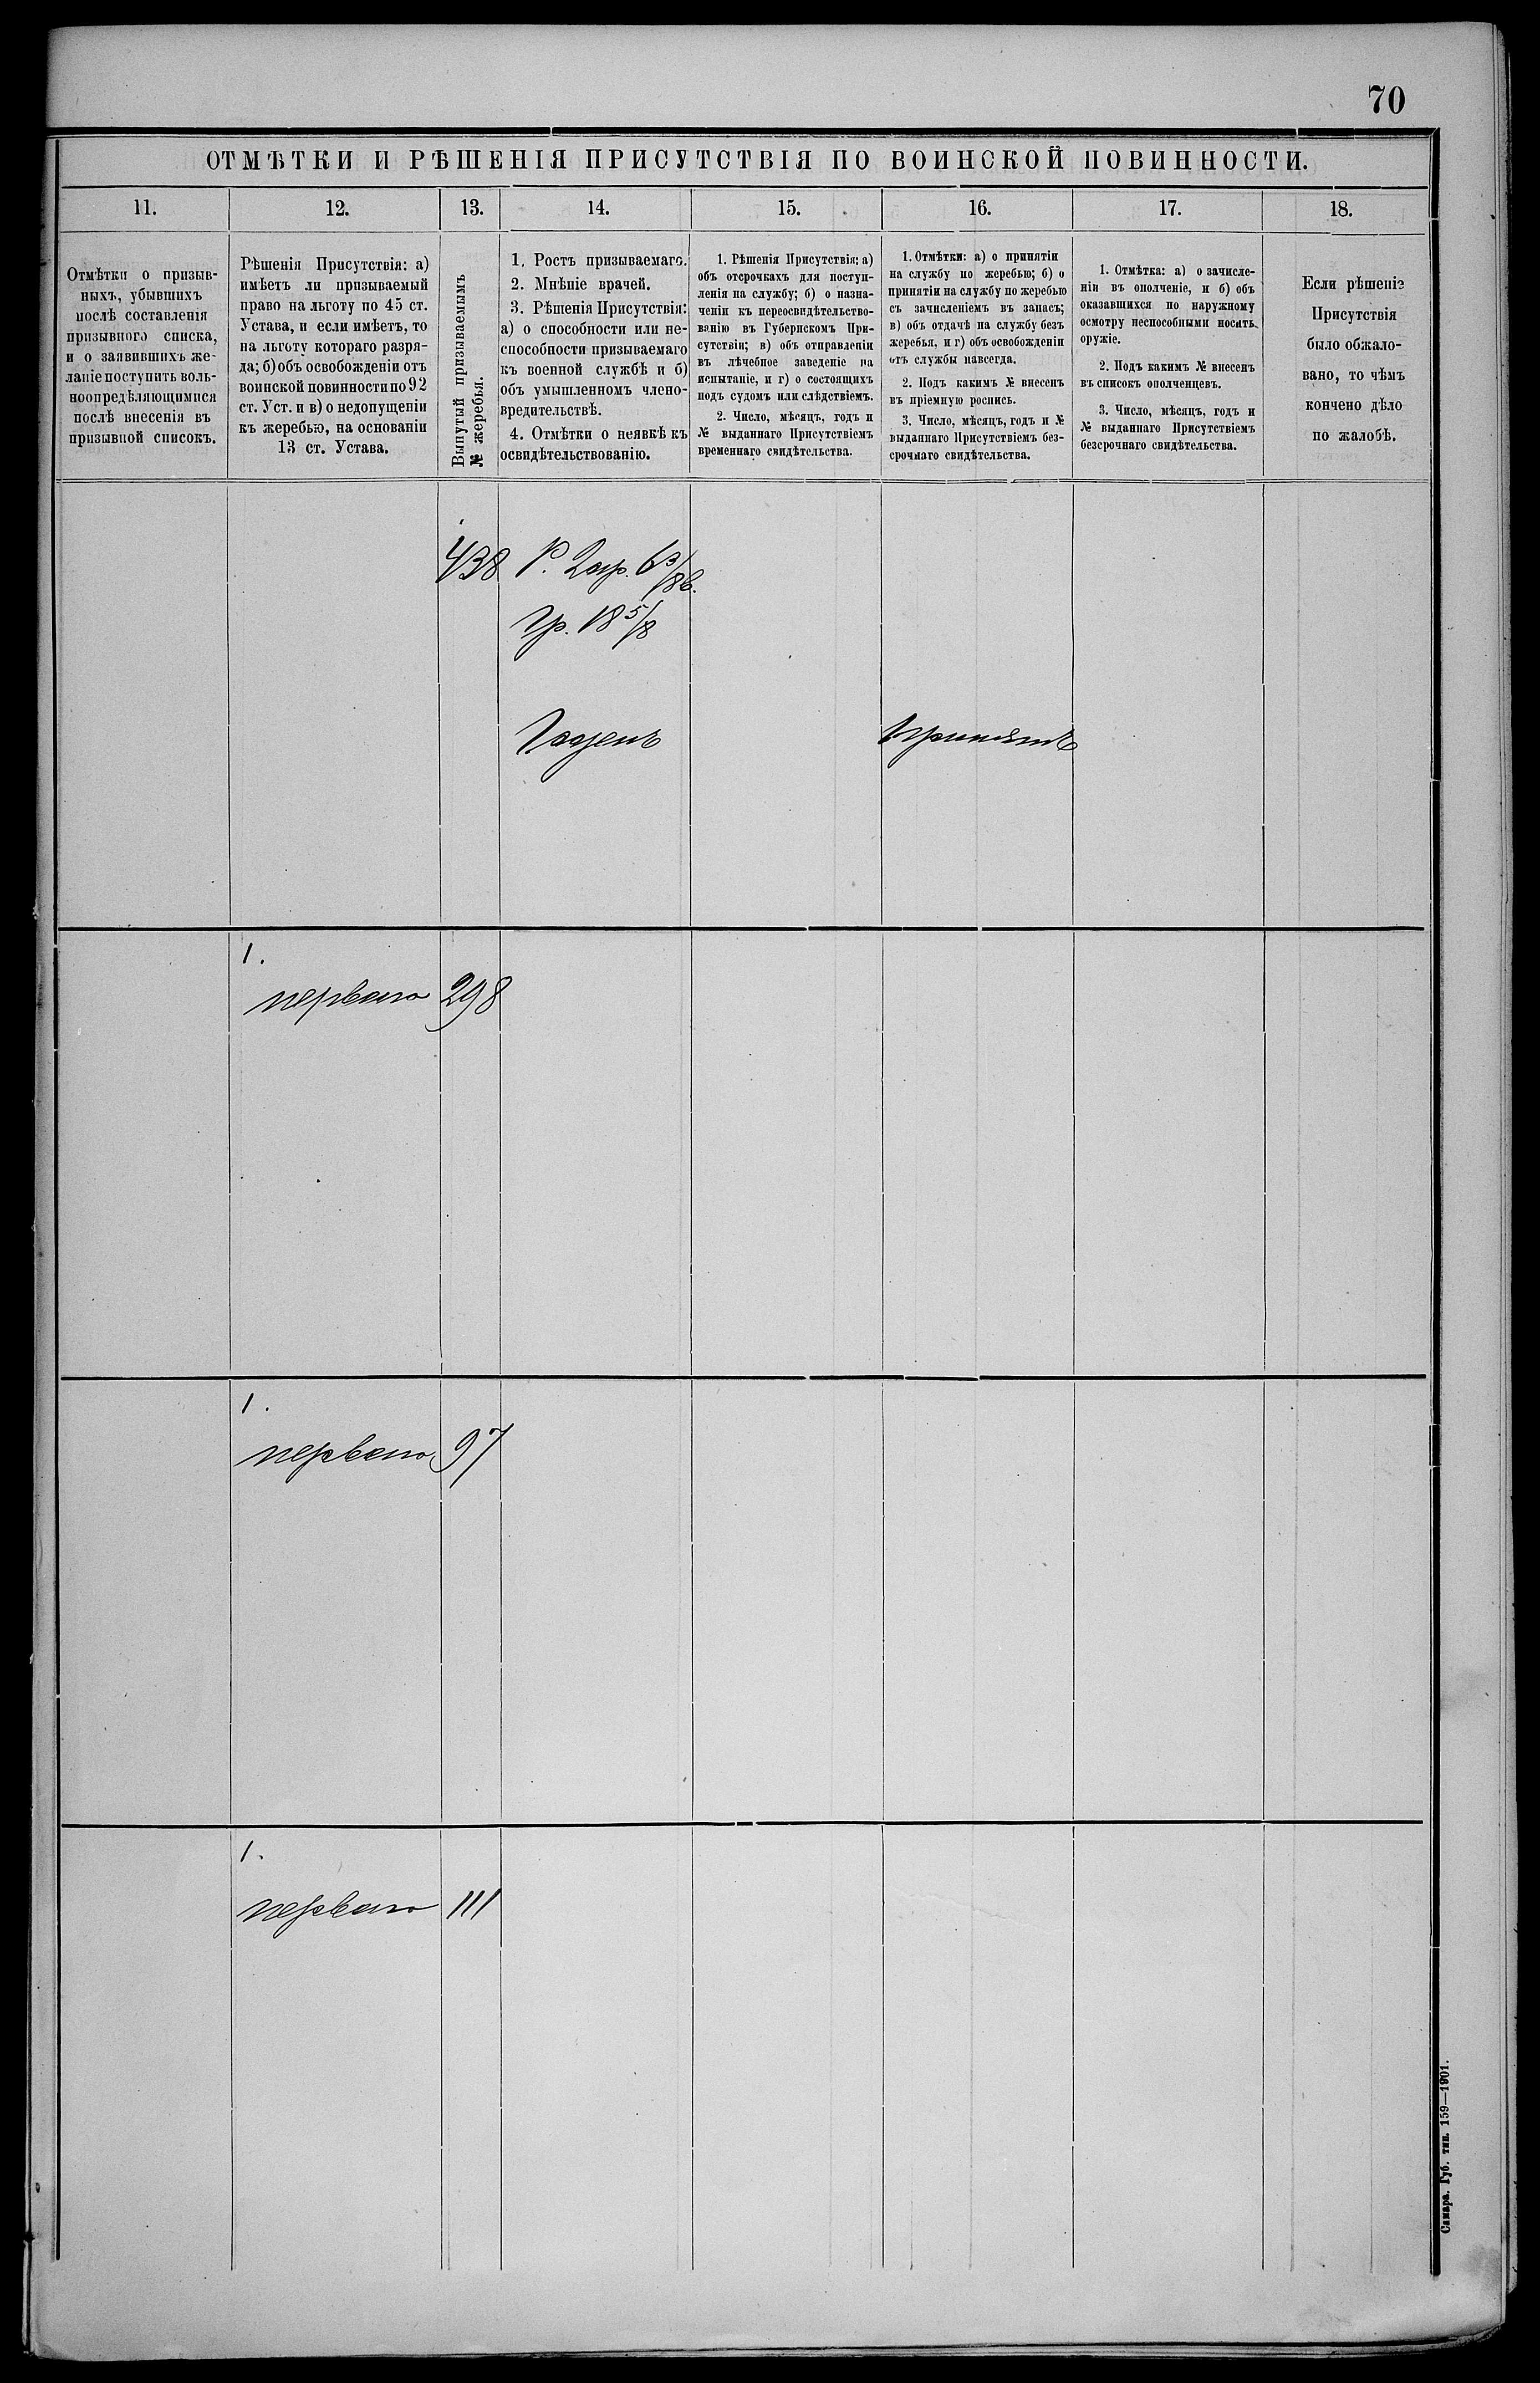 70
ОТМѢТКИ И РѢШЕНІЯ ПРИСУТСТВІЯ ПО ВОИНСКОЙ ПОВИННОСТИ.
11.
12.
13.
14.
15.
16.
17.
18.
Отмѣтки о призыв-
ныхъ, убывшихъ
послѣ составленія
призывного списка,
и о заявившихъ же-
ланіе поступить воль-
ноопредѣляющимися
послѣ внесенія въ
призывной списокъ.
Рѣшенія Присутствія: а)
имѣетъ ли призываемый
право на льготу по 45 ст.
Устава, и если имѣетъ, то
на льготу котораго разря-
да; б) объ освобожденіи отъ
воинской повинности по 92
ст. Уст. и в) о недопущеніи
къ жеребью, на основаніи
13 ст. Устава.
Вынутый призываемымъ
№ жеребья.
1. Ростъ призываемаго.
2. Мнѣніе врачей.
3. Рѣшенія Присутствія:
а) о способности или не-
способности призываемаго
къ военной службѣ и б)
объ умышленномъ члено-
вредительствѣ.
4. Отмѣтки о неявкѣ къ
освидѣтельствованію.
1. Рѣшенія Присутствія: а)
объ отсрочкахъ для поступ-
ленія на службу; б) о назна-
ченіи къ переосвидѣтельство-
ванію въ Губернскомъ При-
сутствіи; в) объ отправленіи
въ лѣчебное заведеніе на
испытаніе, и г) о состоящихъ
подъ судомъ или слѣдствіемъ.
2. Число, мѣсяцъ, годъ и
№ выданнаго Присутствіемъ
временнаго свидѣтельства.
1. Отмѣтки: а) о принятіи
на службу по жеребью; б) о
принятіи на службу по жеребью
съ зачисленіемъ въ запасъ;
в) объ отдачѣ на службу безъ
жеребья, и г) объ освобожденіи
отъ службы навсегда.
2. Подъ какимъ № внесенъ
въ пріемную роспись.
3. Число, мѣсяцъ, годъ и №
выданнаго Присутствіемъ без-
срочнаго свидѣтельства.
1. Отмѣтка: а) о зачисле-
ніи въ ополченіе, и б) объ
оказавшихся по наружному
осмотру неспособными носить
оружіе.
2. Подъ какимъ № внесенъ
въ списокъ ополченцевъ.
3. Число, мѣсяцъ, годъ и
№ выданнаго Присутствіемъ
безсрочнаго свидѣтельства.
Если рѣшеніе
Присутствія
было обжало-
вано, то чѣмъ
кончено дѣло
по жалобѣ.
438
Р. 2 ар. 6 3/8 в.
Гр. 18 5/8
Годенъ
Принятъ
1.
перваго
298
1.
перваго
97
1.
перваго
111
Самара. Губ. тип. 159—1901.